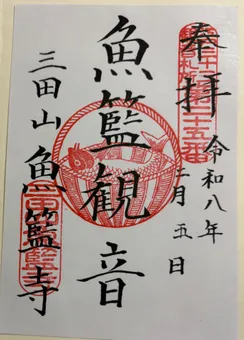 奉拝
第二十五番
令和八年
二月五日
魚籃観音
三田山 魚籃寺